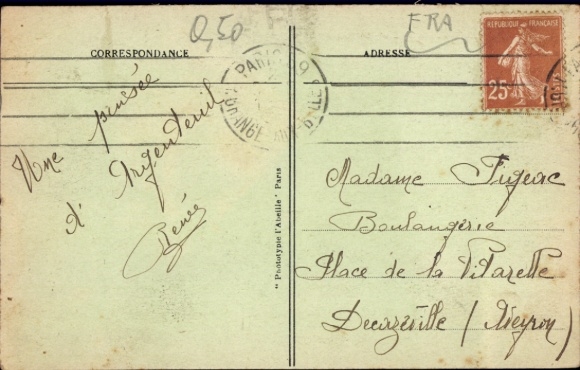 0,50
FRA
CORRESPONDANCE
ADRESSE
REPUBLIQUE FRANÇAISE
25c
PARIS
Une pensée
d'Argenteuil
Renée
"Phototypie l'Abeille" Paris
Madame Figeac
Boulangerie
Place de la Vitarelle
Decazeville (Aveyron)